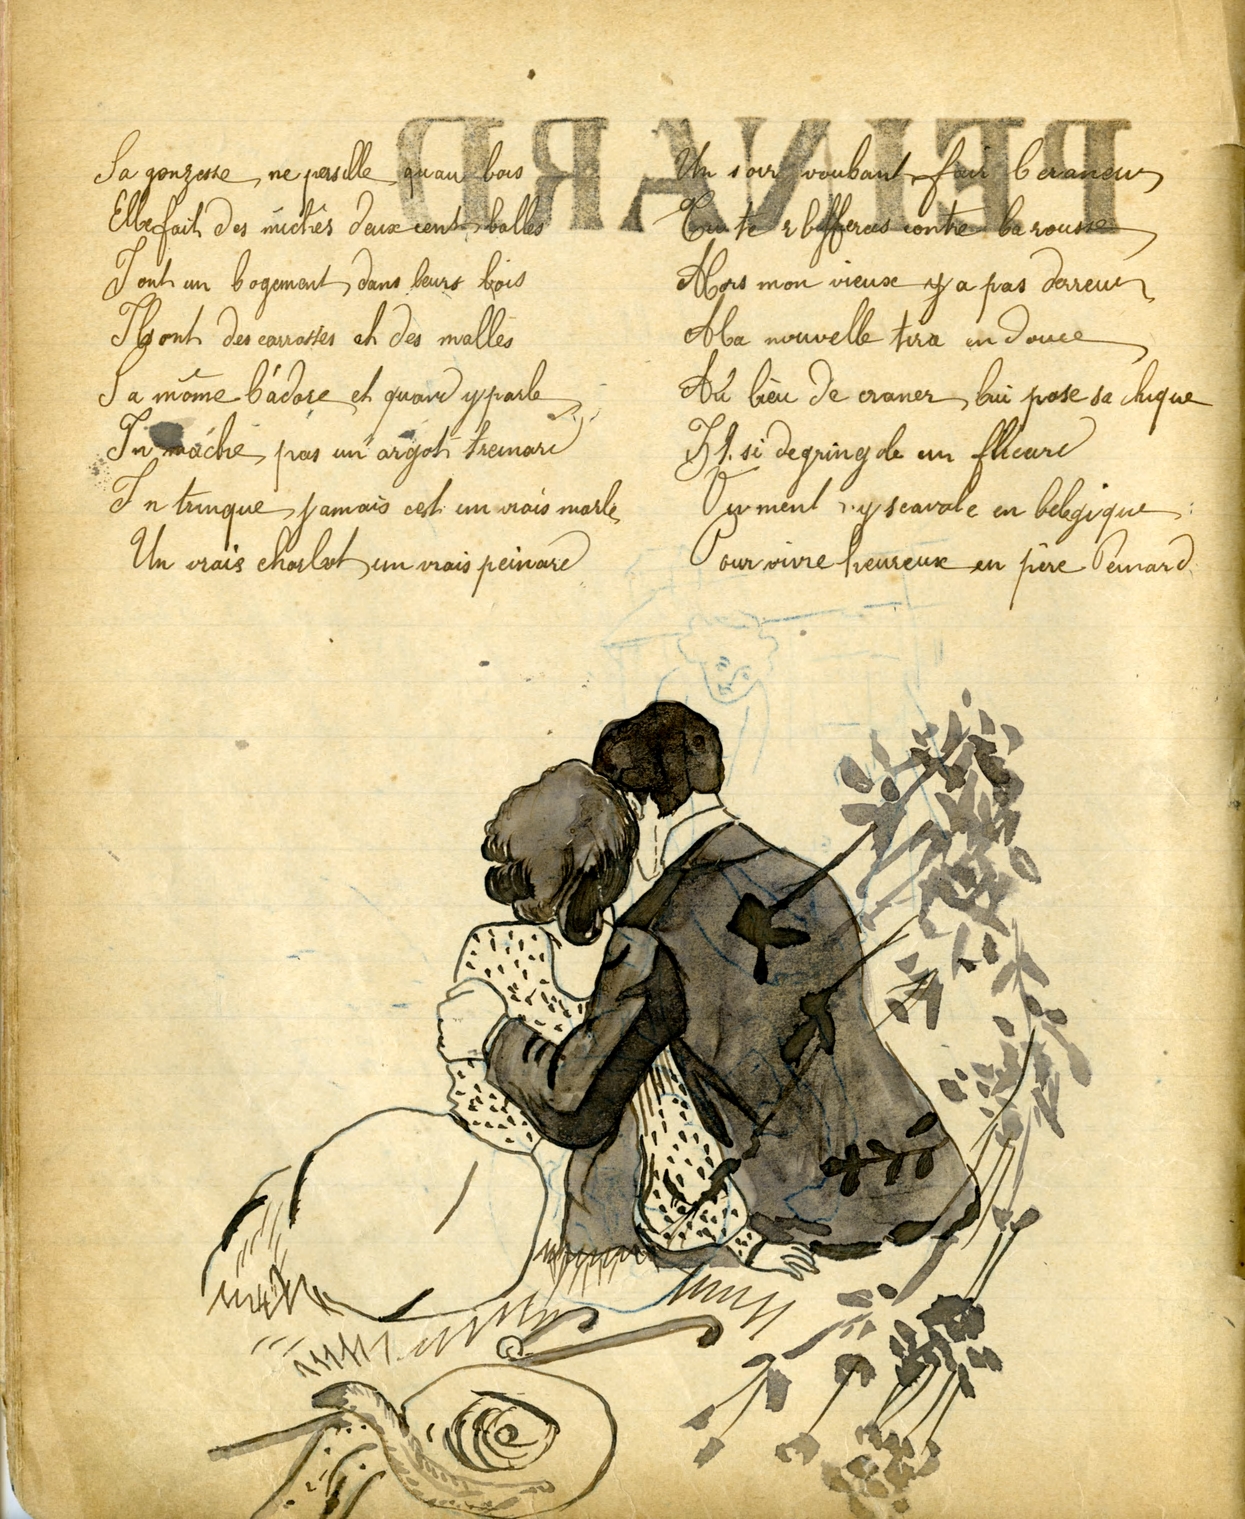 PEINARD
Sa gonzesse ne persille quau bois
Elle fait des michés deux cent balles
I ont un logement dans leurs bois
Ils ont des carrosses et des malles
Sa môme l'adore et quand y parle
I n mâche pas un argot trimard
I n trinque jamais cest un vrais marle
Un vrais charlot un vrais peinard
Un soir voulant fair le craneur
Tu te rbifferas contre la rousse
Alors mon vieux y a pas derreur
A la nouvelle tira en douce
Au lieu de craner lui pose sa chique
Et si degringole un flicard
Vivment y scavale en belgique
Pour vivre heureux en père Peinard